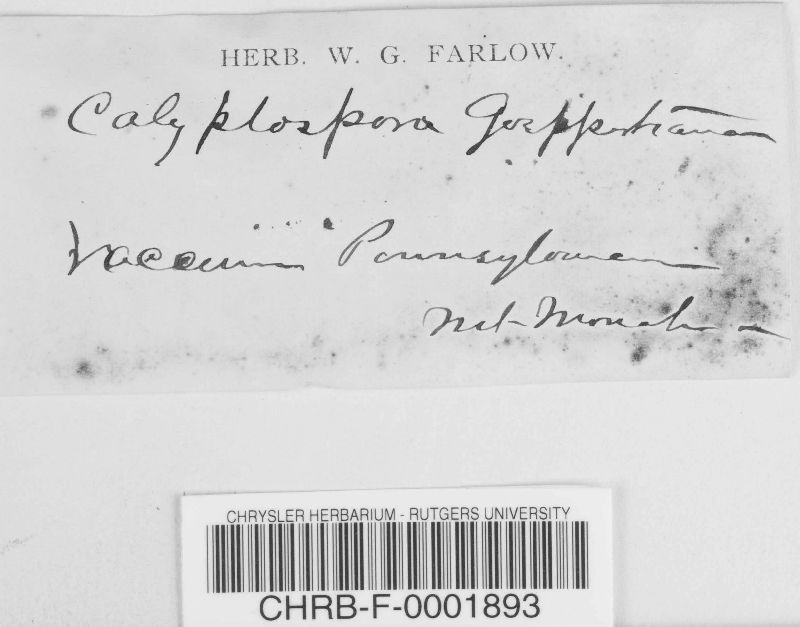 HERB. W. G. FARLOW.
Calyptospora Goeppertiana
Vaccinium Pennsylvanicum
CHRYSLER HERBARIUM - RUTGERS UNIVERSITY
CHRB-F-0001893